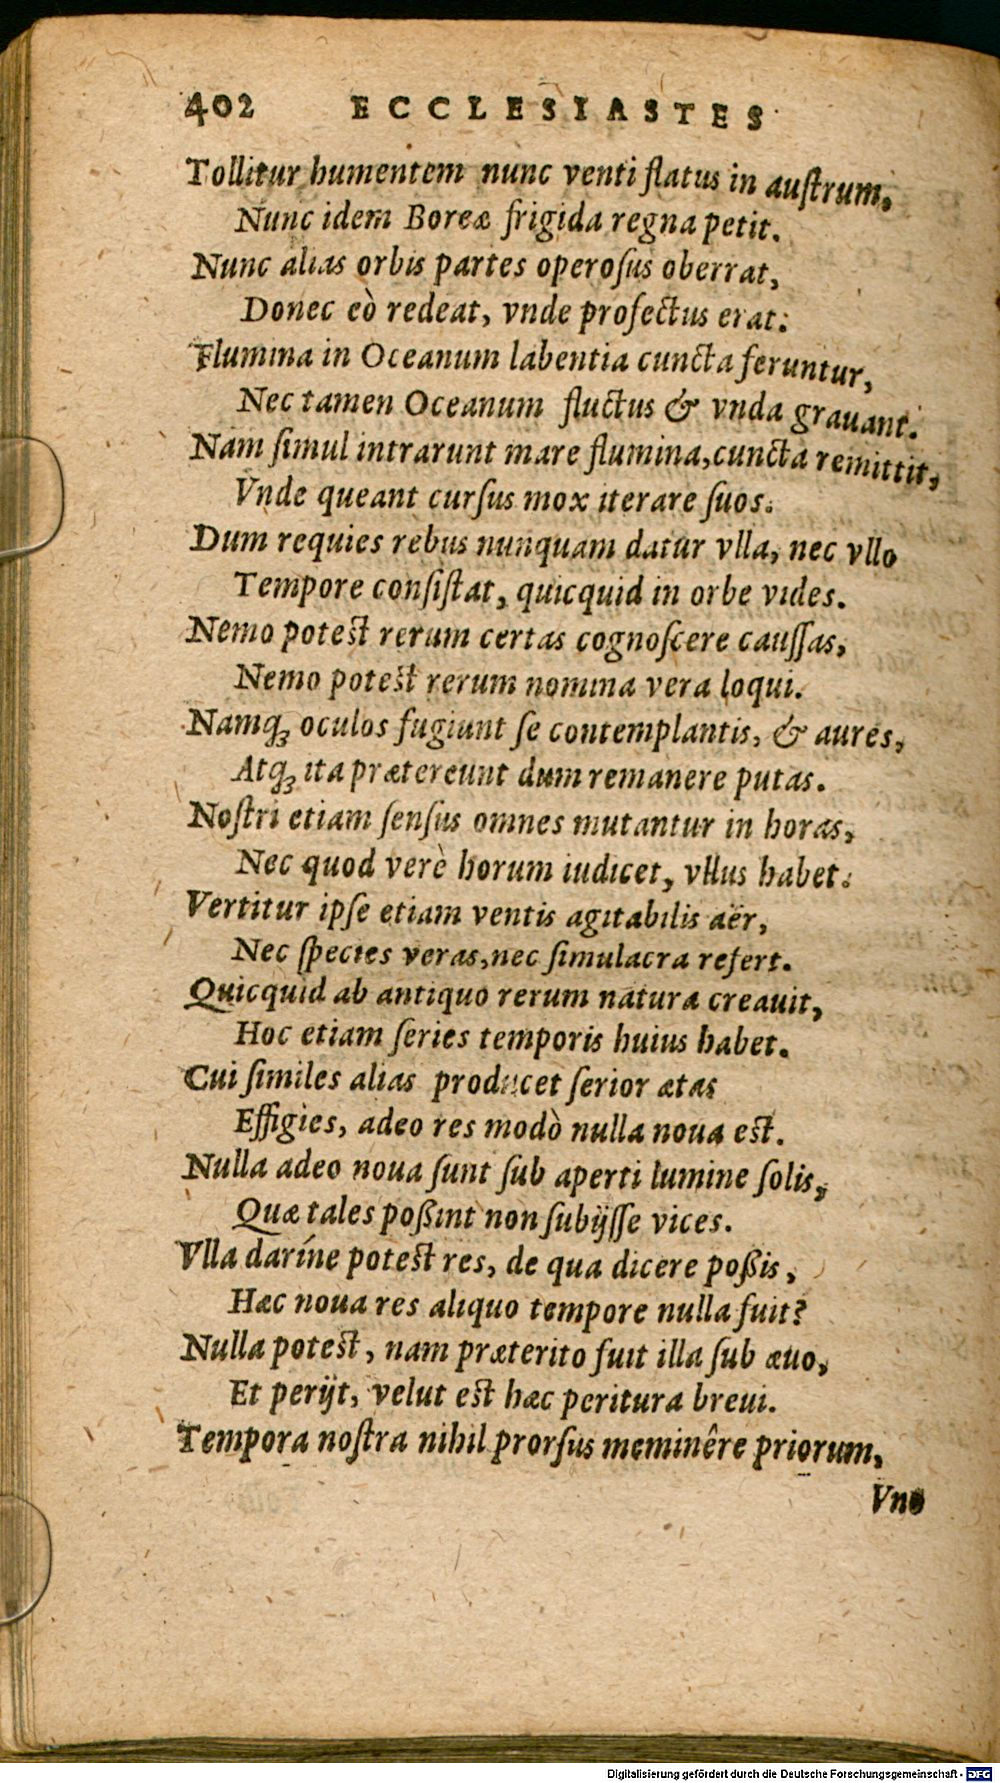 402 ECCLESIASTES
Tollitur humentem nunc venti flatus in auſtrum,
Nunc idem Boreæ frigida regna petit.
Nunc alias orbis partes operoſus oberrat,
Donec eò redeat, vnde profectus erat:
Flumina in Oceanum labentia cuncta feruntur,
Nec tamen Oceanum fluctus & vnda grauant.
Nam ſimul intrarunt mare flumina, cuncta remittit,
Vnde queant curſus mox iterare ſuos.
Dum requies rebus nunquam datur vlla, nec vllo
Tempore conſiſtat, quicquid in orbe vides.
Nemo poteſt rerum certas cognoſcere cauſſas,
Nemo poteſt rerum nomina vera loqui.
Namq́ꝫ oculos fugiunt ſe contemplantis, & aures,
Atq́ꝫ ita prætereunt dum remanere putas.
Noſtri etiam ſenſus omnes mutantur in horas,
Nec quod verè horum iudicet, vllus habet.
Vertitur ipſe etiam ventis agitabilis aër,
Nec ſpecies veras, nec ſimulacra refert.
Quicquid ab antiquo rerum natura creauit,
Hoc etiam ſeries temporis huius habet.
Cui ſimiles alias producet ſerior ætas
Effigies, adeo res modò nulla noua eſt.
Nulla adeo noua ſunt ſub aperti lumine ſolis,
Quæ tales poßint non ſubijſſe vices.
Vlla daríne poteſt res, de qua dicere poßis,
Hæc noua res aliquo tempore nulla fuit?
Nulla poteſt, nam præterito fuit illa ſub æuo,
Et perijt, velut eſt hæc peritura breui.
Tempora noſtra nihil prorſus meminêre priorum,
Vno
Digitalisierung gefördert durch die Deutsche Forschungsgemeinschaft - DFG